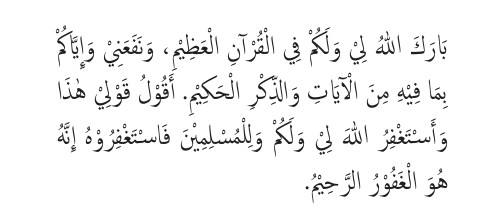 بَارَكَ اللهُ لِيْ وَلَكُمْ فِي الْقُرْآنِ الْعَظِيْمِ، وَنَفَعَنِيْ وَإِيَّاكُمْ
بِمَا فِيْهِ مِنَ الْآيَاتِ وَالذِّكْرِ الْحَكِيْمِ. أَقُوْلُ قَوْلِيْ هٰذَا
وَأَسْتَغْفِرُ اللهَ لِيْ وَلَكُمْ وَلِلْمُسْلِمِيْنَ فَاسْتَغْفِرُوْهُ إِنَّهُ
هُوَ الْغَفُوْرُ الرَّحِيْمُ.